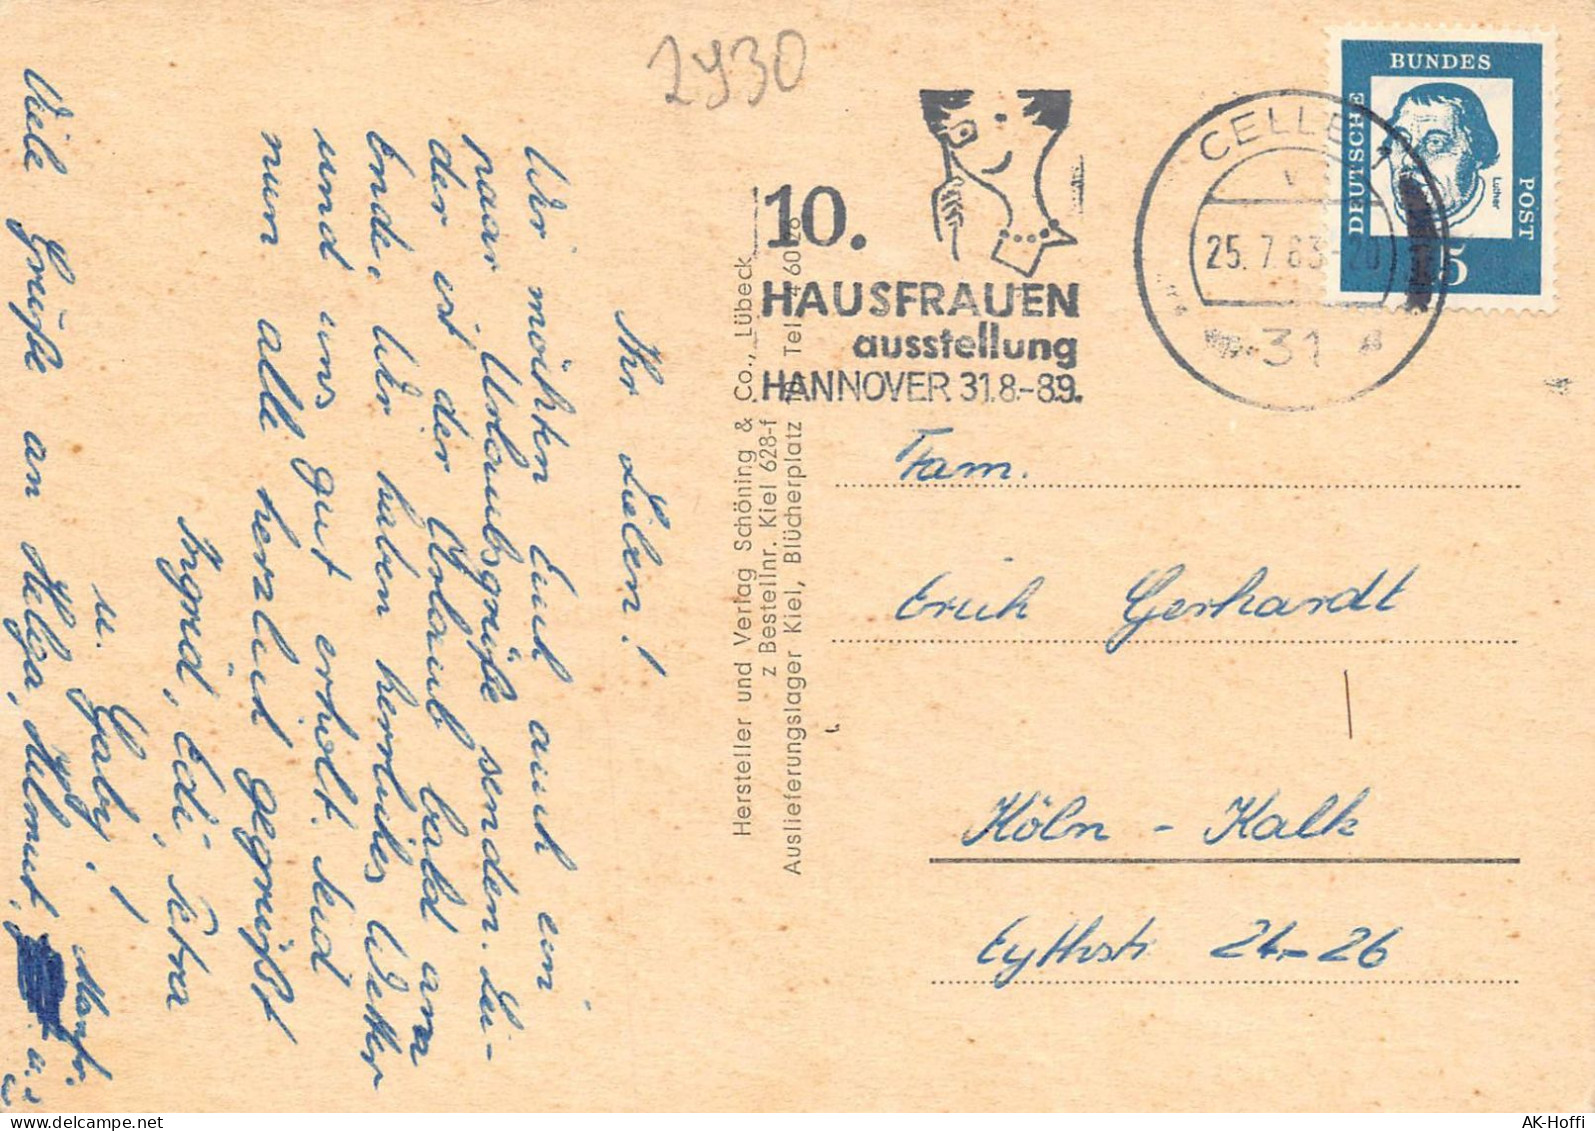 2930
Ihr Lieben!
Wir möchten Euch auch ein
paar Urlaubsgrüße senden. Lei-
der ist der Urlaub bald am
Ende. Wir haben herrliches Wetter
und uns gut erholt. Seid
nun alle herzlich gegrüßt
Ingrid, Edi, Petra
u. Gaby!
Viele Grüße an Helga, Helmut,
Manfr.
Hersteller und Verlag Schöning & Co., Lübeck
z Bestellnr. Kiel 628-f
Auslieferungslager Kiel, Blücherplatz Tel
10.
HAUSFRAUEN
ausstellung
HANNOVER 31.8.-8.9.
CELLE 1
25.7.63-20
31
DEUTSCHE
BUNDES
POST
Luther
15
Fam.
Erich Gerhardt
Köln - Kalk
Eythstr. 24-26
AK-Hoffi